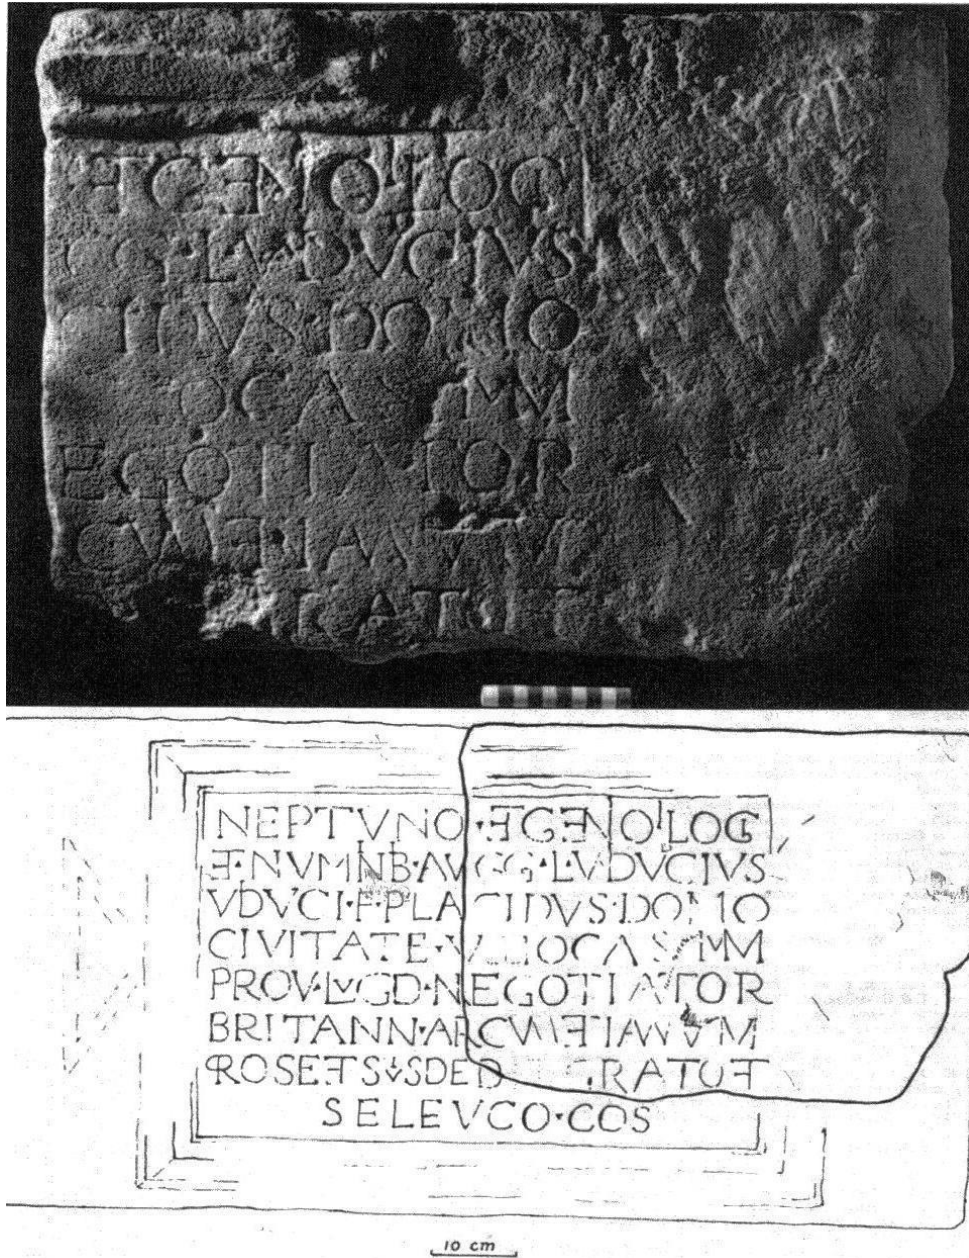 ETGENIOLOCI
GG·L·VIDVCIVS
CIDVS·DOMO
OCAS IVM
EGOTIATOR
CVMETIANVAM
GRATOET
NEPTVNO·ETGENIOLOCI
ET·NVMINIB·AVGG·L·VIDVCIVS
VIDVCI·F·PLACIDVS·DOMO
CIVITATE·VELIOCASSIVM
PROV·LVGD·NEGOTIATOR
BRITANN·ARCVMETIANVAM
PROSEETSVISDED GRATOET
SELEVCO·COS
10 cm